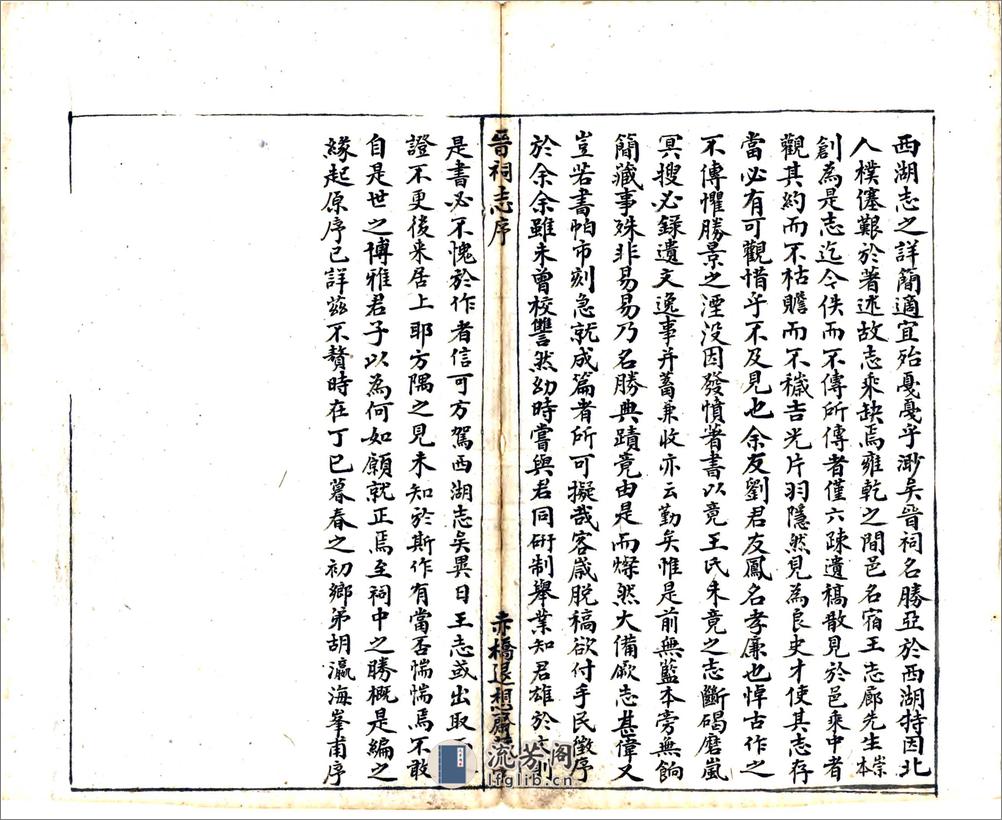 西湖志之詳簡適宜殆戞戞乎渺矣晉祠名勝亞於西湖特因北
人樸僿艱於著述故志乘缺焉雍乾之間邑名宿王志廊先生崇本
創為是志迄今佚而不傳所傳者僅六疎遺稿散見於邑乘中者
觀其約而不枯贍而不穢吉光片羽隱然見為良史才使其志存
當必有可觀惜乎不及見也余友劉君友鳳名孝廉也悼古作之
不傳懼勝景之湮没因發憤著書以竟王氏未竟之志斷碣磨嵐
冥搜必録遺文逸事并蓄兼收亦云勤矣惟是前無藍本旁無餉
簡蕆事殊非易易乃名勝典蹟竟由是而燦然大備厥志甚偉又
豈若書帕市刻急就成篇者所可擬哉客歲脱稿欲付手民徵序
於余余雖未曾校讐然幼時嘗與君同研制舉業知君雄於
晉祠志序
赤橋退想齋
是書必不愧於作者信可方駕西湖志矣異日王志或出取
證不更後来居上耶方隅之見未知於斯作有當否惴惴焉不敢
自是世之博雅君子以為何如願就正焉至祠中之勝概是編之
緣起原序已詳兹不贅時在丁巳暮春之初鄉弟胡瀛海峯甫序
流芳阁
lfglib.cn